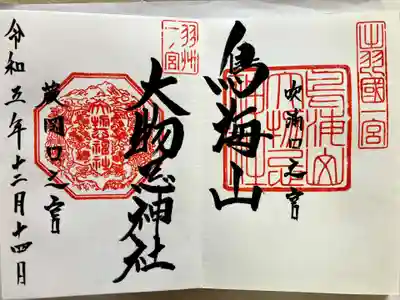 出羽國一宮
吹浦口之宮
鳥海山
羽州
一ノ宮
大物忌神社
蕨岡口之宮
令和五年十二月十四日